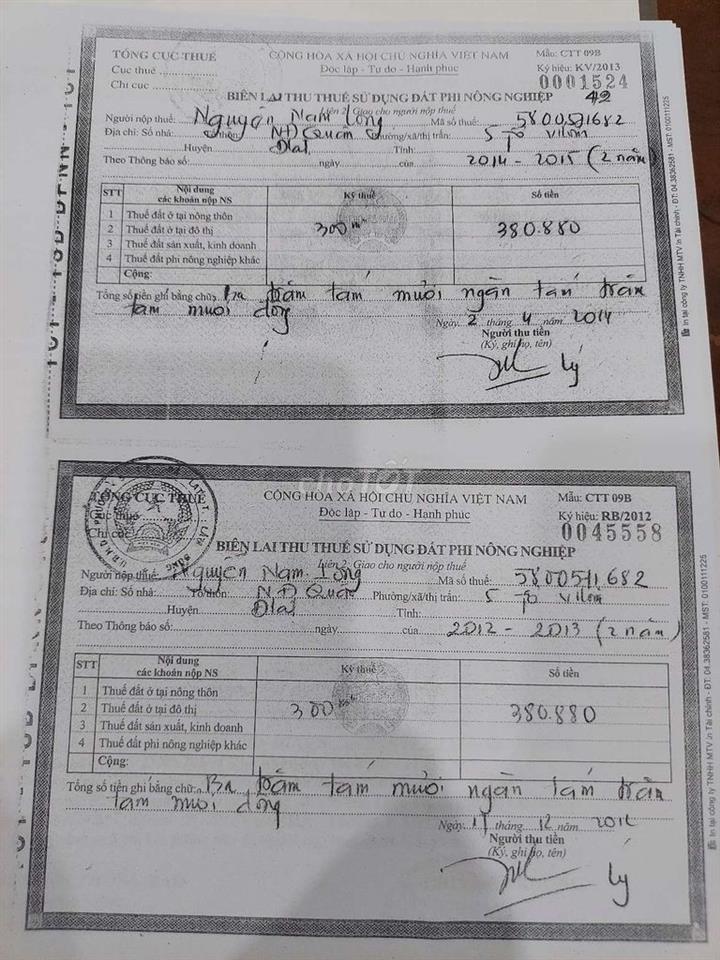 TỔNG CỤC THUẾ
CỘNG HÒA XÃ HỘI CHỦ NGHĨA VIỆT NAM
Mẫu: CTT 09B
Cục thuế
Độc lập - Tự do - Hạnh phúc
Ký hiệu: KV/2013
Chi cục
0001524
BIÊN LAI THU THUẾ SỬ DỤNG ĐẤT PHI NÔNG NGHIỆP
42
Liên 2: Giao cho người nộp thuế
Người nộp thuế: Nguyễn Nam Long Mã số thuế: 5800571682
Địa chỉ: Số nhà: NĐ Quân Phường/xã/thị trấn: 5
Huyện Đlạt Tỉnh:
Theo Thông báo số: ngày của 2014 - 2015 (2 năm)
STT Nội dung các khoản nộp NS Kỳ thuế Số tiền
1 Thuế đất ở tại nông thôn
2 Thuế đất ở tại đô thị 300 380.880
3 Thuế đất sản xuất, kinh doanh
4 Thuế đất phi nông nghiệp khác
Cộng:
Tổng số tiền ghi bằng chữ: Ba trăm tám mươi ngàn tám trăm
tám mươi đồng
Ngày 2 tháng 4 năm 2014
Người thu tiền
(Ký, ghi họ, tên)
Lý
In tại công ty TNHH MTV In Tài chính - ĐT: 04.38362581 - MST: 0100111225
CHỢ TỐT
TỔNG CỤC THUẾ
CỘNG HÒA XÃ HỘI CHỦ NGHĨA VIỆT NAM
Mẫu: CTT 09B
Cục thuế
Độc lập - Tự do - Hạnh phúc
Ký hiệu: RB/2012
Chi cục
0045558
BIÊN LAI THU THUẾ SỬ DỤNG ĐẤT PHI NÔNG NGHIỆP
Liên 2: Giao cho người nộp thuế
Người nộp thuế: Nguyễn Nam Long Mã số thuế: 5800571682
Địa chỉ: Số nhà: Tổ/thôn: NĐ Quân Phường/xã/thị trấn: 5
Huyện Đlạt Tỉnh:
Theo Thông báo số: ngày của 2012 - 2013 (2 năm)
STT Nội dung các khoản nộp NS Kỳ thuế Số tiền
1 Thuế đất ở tại nông thôn
2 Thuế đất ở tại đô thị 300 380.880
3 Thuế đất sản xuất, kinh doanh
4 Thuế đất phi nông nghiệp khác
Cộng:
Tổng số tiền ghi bằng chữ: Ba trăm tám mươi ngàn tám trăm
tám mươi đồng
Ngày 11 tháng 12 năm 2012
Người thu tiền
(Ký, ghi họ, tên)
Lý
In tại công ty TNHH MTV In Tài chính - ĐT: 04.38362581 - MST: 0100111225